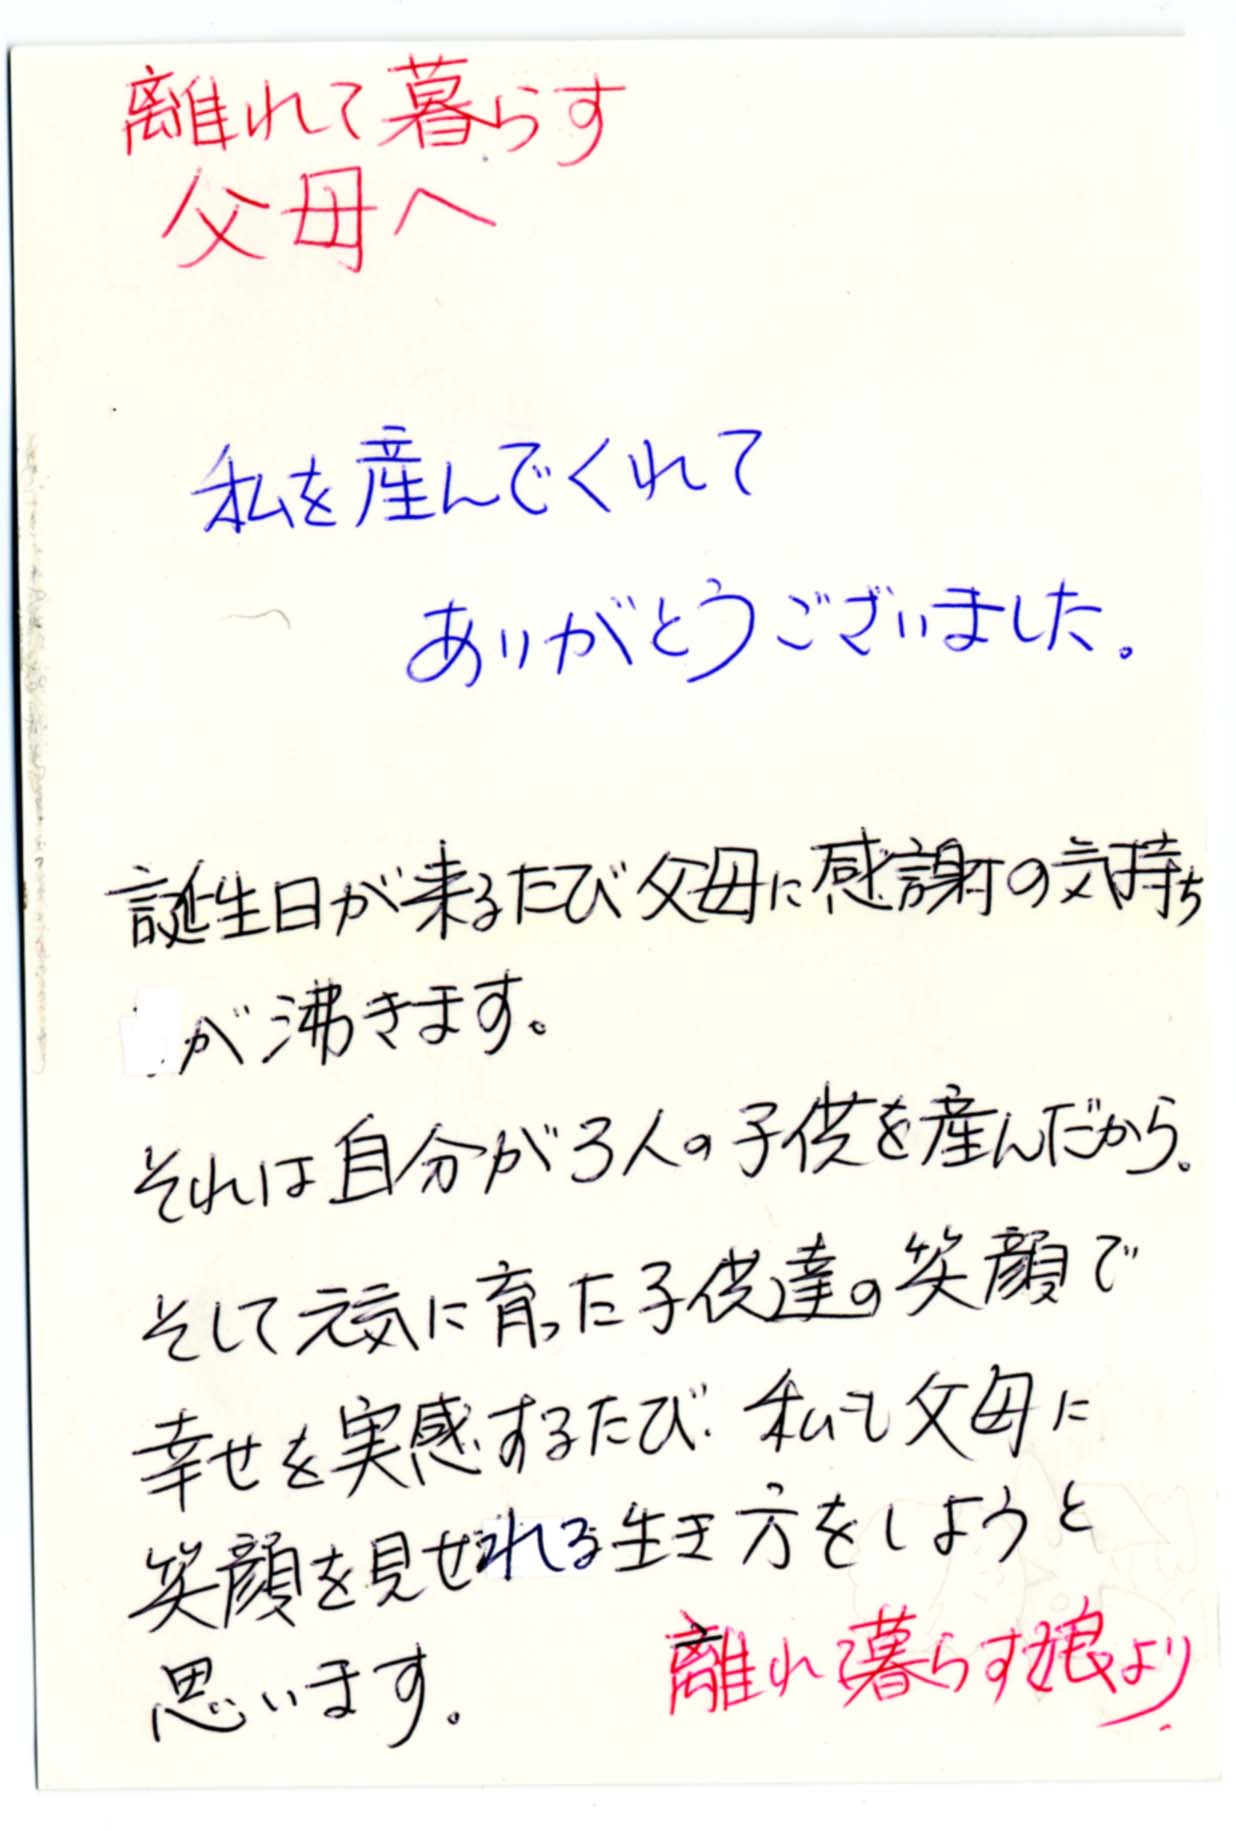 離れて暮らす
父母へ
私を産んでくれて
ありがとうございました。
誕生日が来るたび父母に感謝の気持ち
が沸きます。
それは自分が3人の子供を産んだから。
そして元気に育った子供達の笑顔で
幸せを実感するたび、私も父母に
笑顔を見せれる生き方をしようと
思います。
離れて暮らす娘より